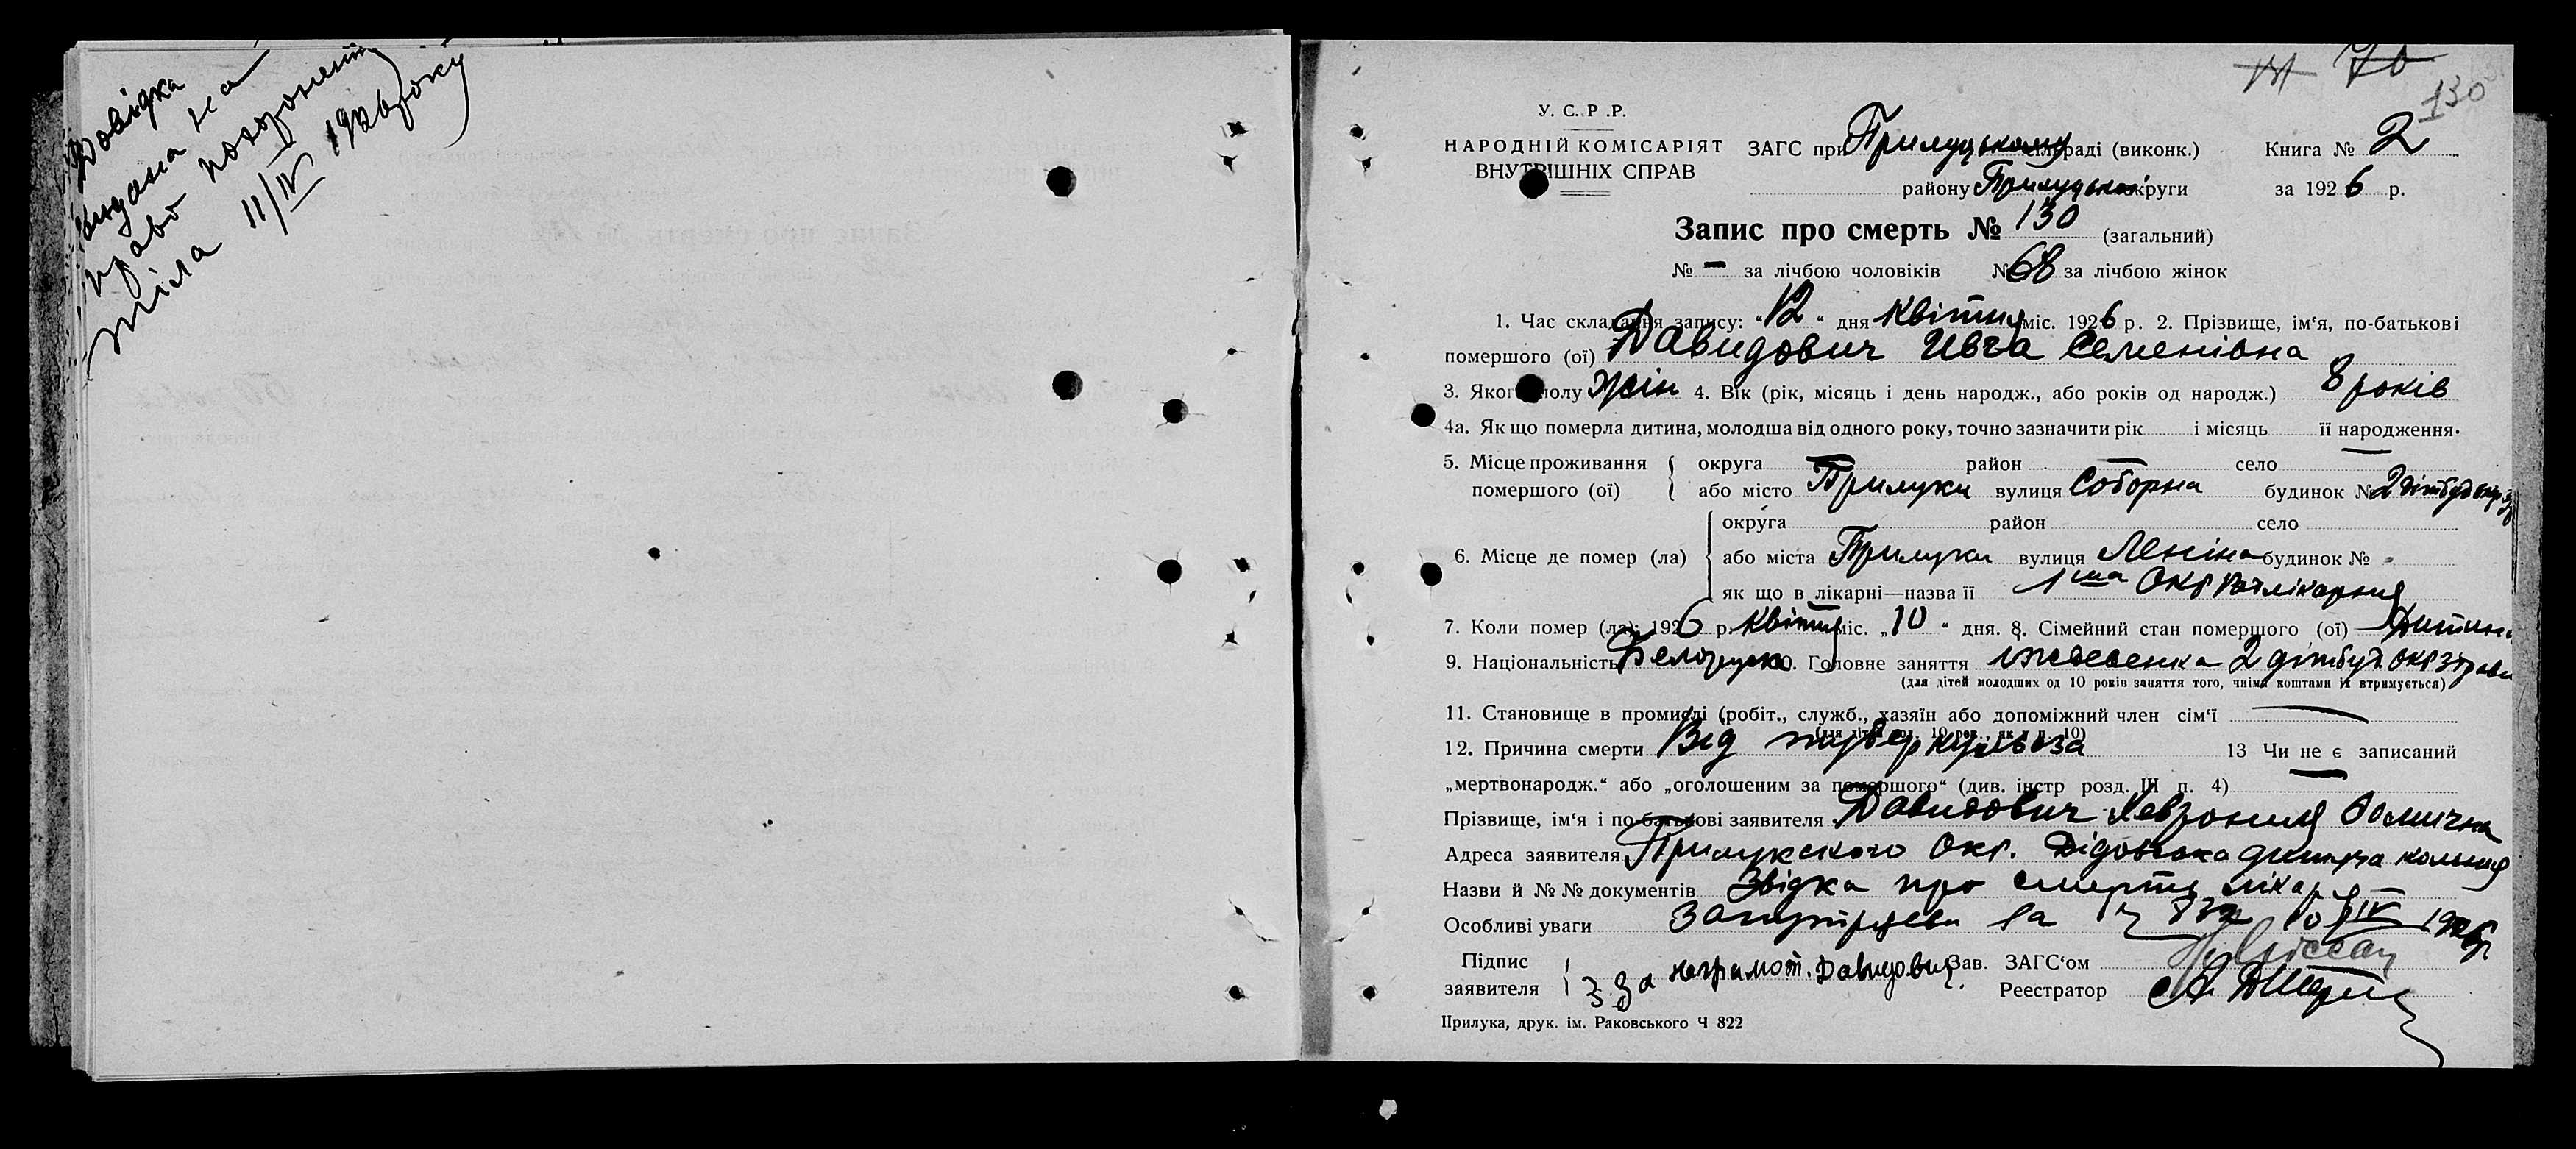 Довідка
видана на
право похоронення
тіла 11/IV 1926 року
130
У. С. Р. Р.
НАРОДНІЙ КОМІСАРІЯТ
ВНУТРІШНІХ СПРАВ
ЗАГС при Прилуцькому раді (виконк.)
Книга № 2
району Прилуцької округи
за 1926 р.
Запис про смерть № 130 (загальний)
№ – за лічбою чоловіків № 68 за лічбою жінок
1. Час складання запису: “12“ дня Квітня міс. 1926 р. 2. Прізвище, ім‘я, по-батькові
помершого (ої) Давидович Ивга Семенівна
3. Якого полу жін 4. Вік (рік, місяць і день народж., або років од народж.) 8 років
4а. Як що померла дитина, молодша від одного року, точно зазначити рік і місяць її народження.
5. Місце проживання помершого (ої) округа район село
або місто Прилуки вулиця Соборна будинок № 2 дітбуд
округа район село
6. Місце де помер (ла) або міста Прилуки вулиця Леніна будинок №
як що в лікарні—назва її 1ша Окр лікарня
7. Коли помер (ла): 1926 р. Квітня міс. „10“ дня. 8. Сімейний стан помершого (ої) Дитина
9. Національність Белоруска 10. Головне заняття 2 дітбуд
(для дітей молодших од 10 років заняття того, чиїми коштами їх втримується)
11. Становище в промислі (робіт., служб., хазяїн або допоміжний член сім‘ї —
12. Причина смерти Від туберкульоза 13 Чи не є записаний
„мертвонародж.“ або „оголошеним за помершого“ (див. інстр розд. III п. 4) —
Прізвище, ім‘я і по-батькові заявителя Давидович Хеврония
Адреса заявителя Прилукского Окр. Дідовська
Назви й №№ документів Звідка про смерть лікар
Особливі уваги за 10/IV 1926 р
Підпис
заявителя З за неграмот. Давидович
Зав. ЗАГС‘ом
Реестратор
Прилука, друк. ім. Раковського Ч 822